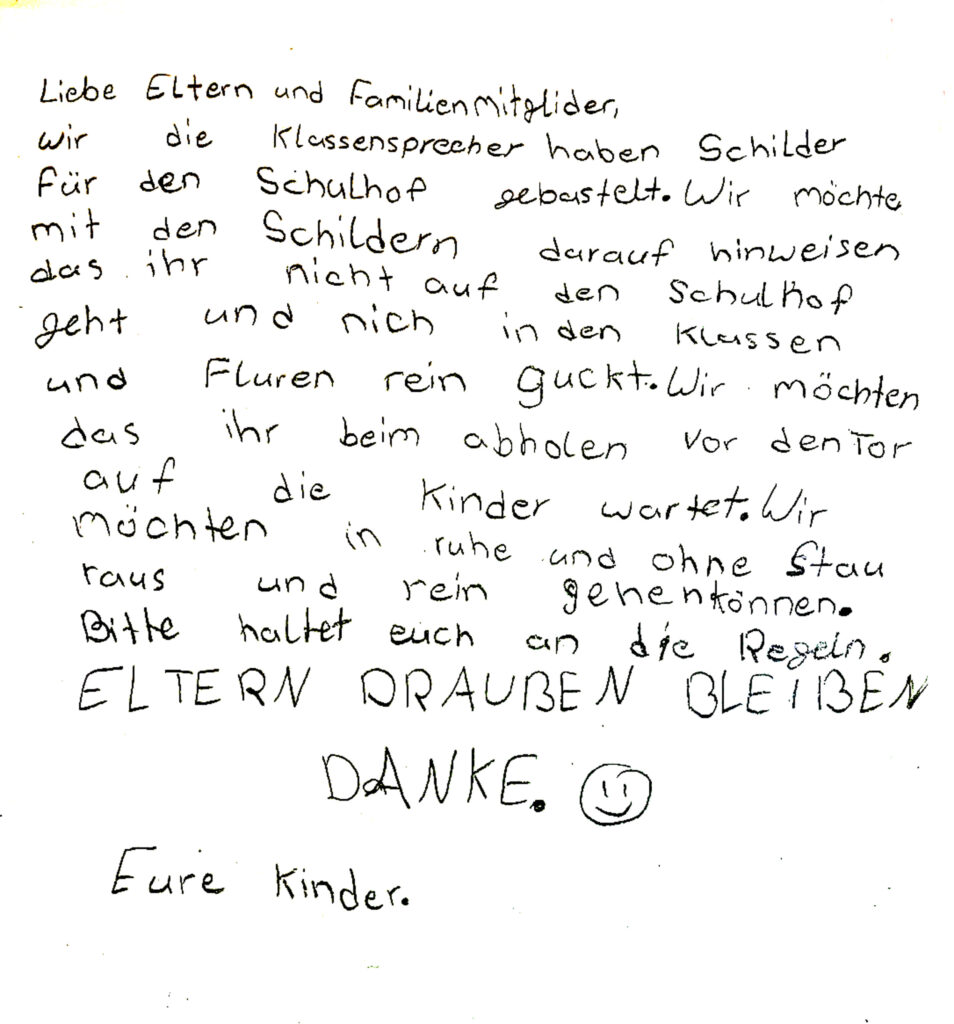 Liebe Eltern und Familienmitglider,
wir die Klassensprecher haben Schilder
für den Schulhof gebastelt. Wir möchte
mit den Schildern darauf hinweisen
das ihr nicht auf den Schulhof
geht und nich in den Klassen
und Fluren rein guckt. Wir möchten
das ihr beim abholen vor den Tor
auf die Kinder wartet. Wir
möchten in ruhe und ohne Stau
raus und rein gehen können.
Bitte haltet euch an die Regeln.
ELTERN DRAUßEN BLEIBEN
DANKE.
Eure Kinder.